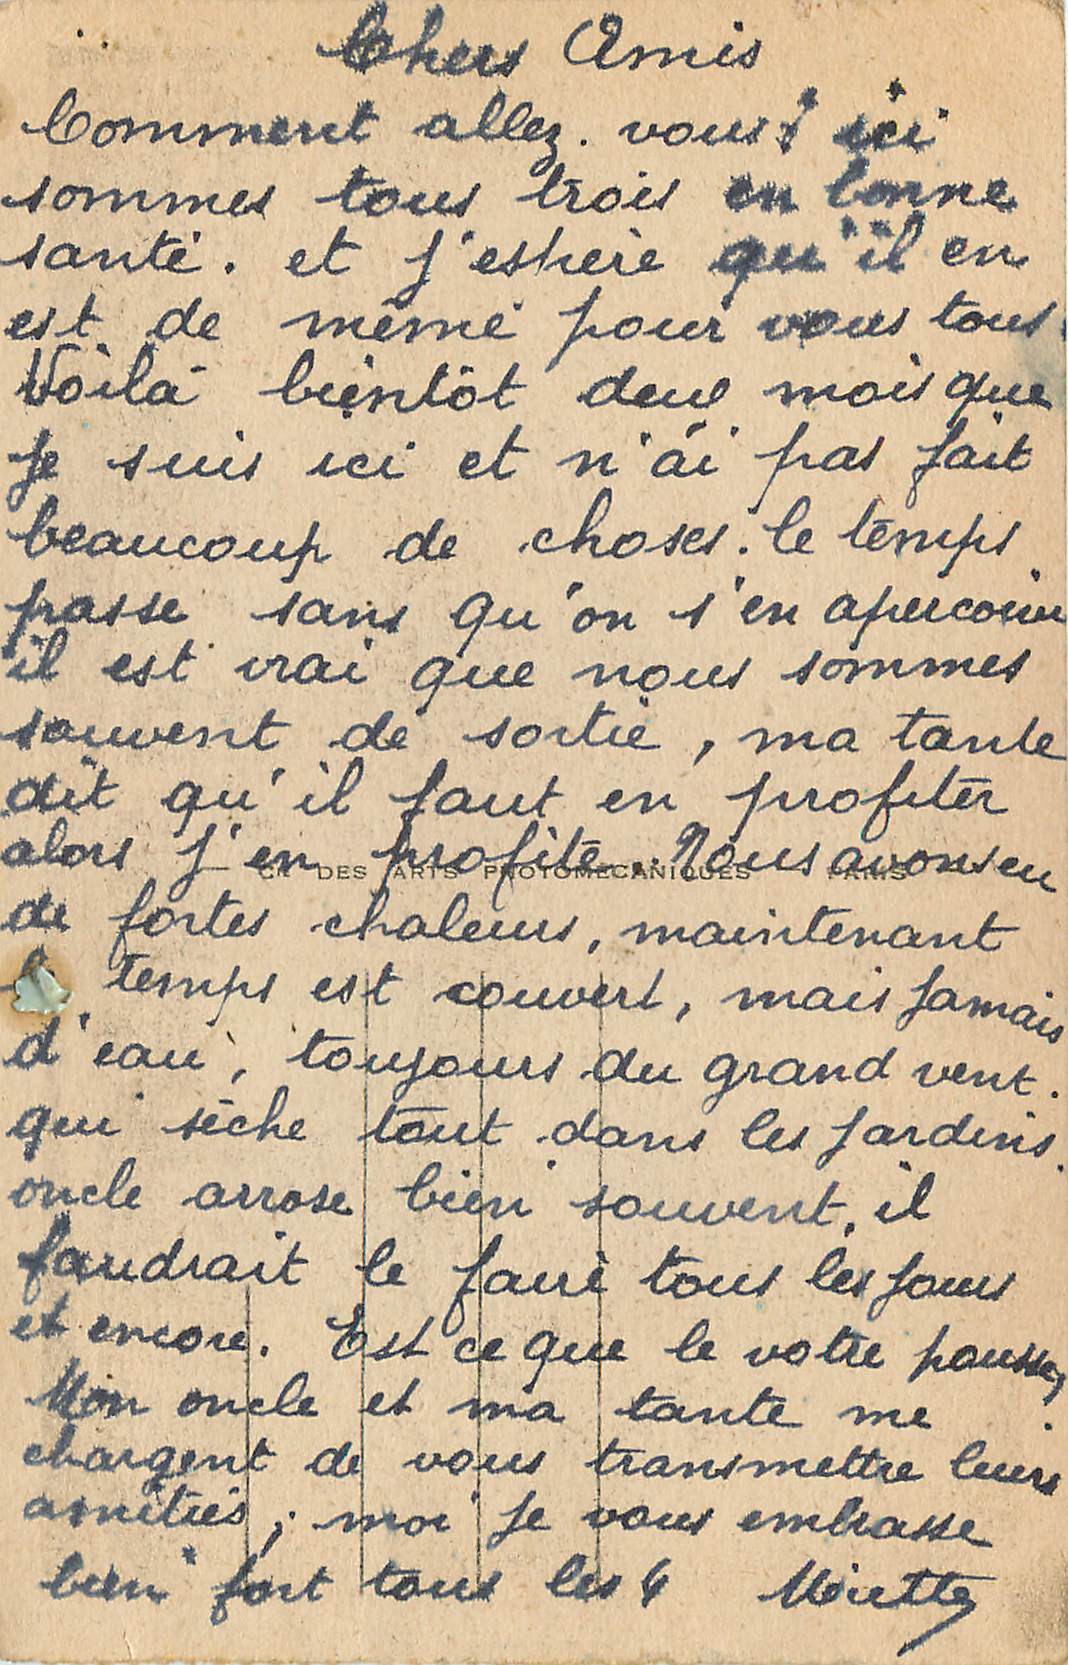 Chers Amis
Comment allez. vous? ici
sommes tous trois en bonne
santé. et j'espère qu'il en
est de même pour vous tous.
Voilà bientôt deux mois que
je suis ici et n'ai pas fait
beaucoup de choses. le temps
passe sans qu'on s'en apercoive
il est vrai que nous sommes
souvent de sortie, ma tante
dit qu'il faut en profiter
alors j'en profite. Nous avons eu
CIE DES ARTS PHOTOMECANIQUES PARIS
de fortes chaleurs, maintenant
temps est couvert, mais jamais
d'eau, toujours du grand vent.
qui sèche tout dans les jardins.
oncle arrose bien souvent, il
faudrait le faire tous les jours
et encore. Est ce que le votre pousse,
Mon oncle et ma tante me
chargent de vous transmettre leurs
amitiés, moi je vous embrasse
bien fort tous les 4 Miette